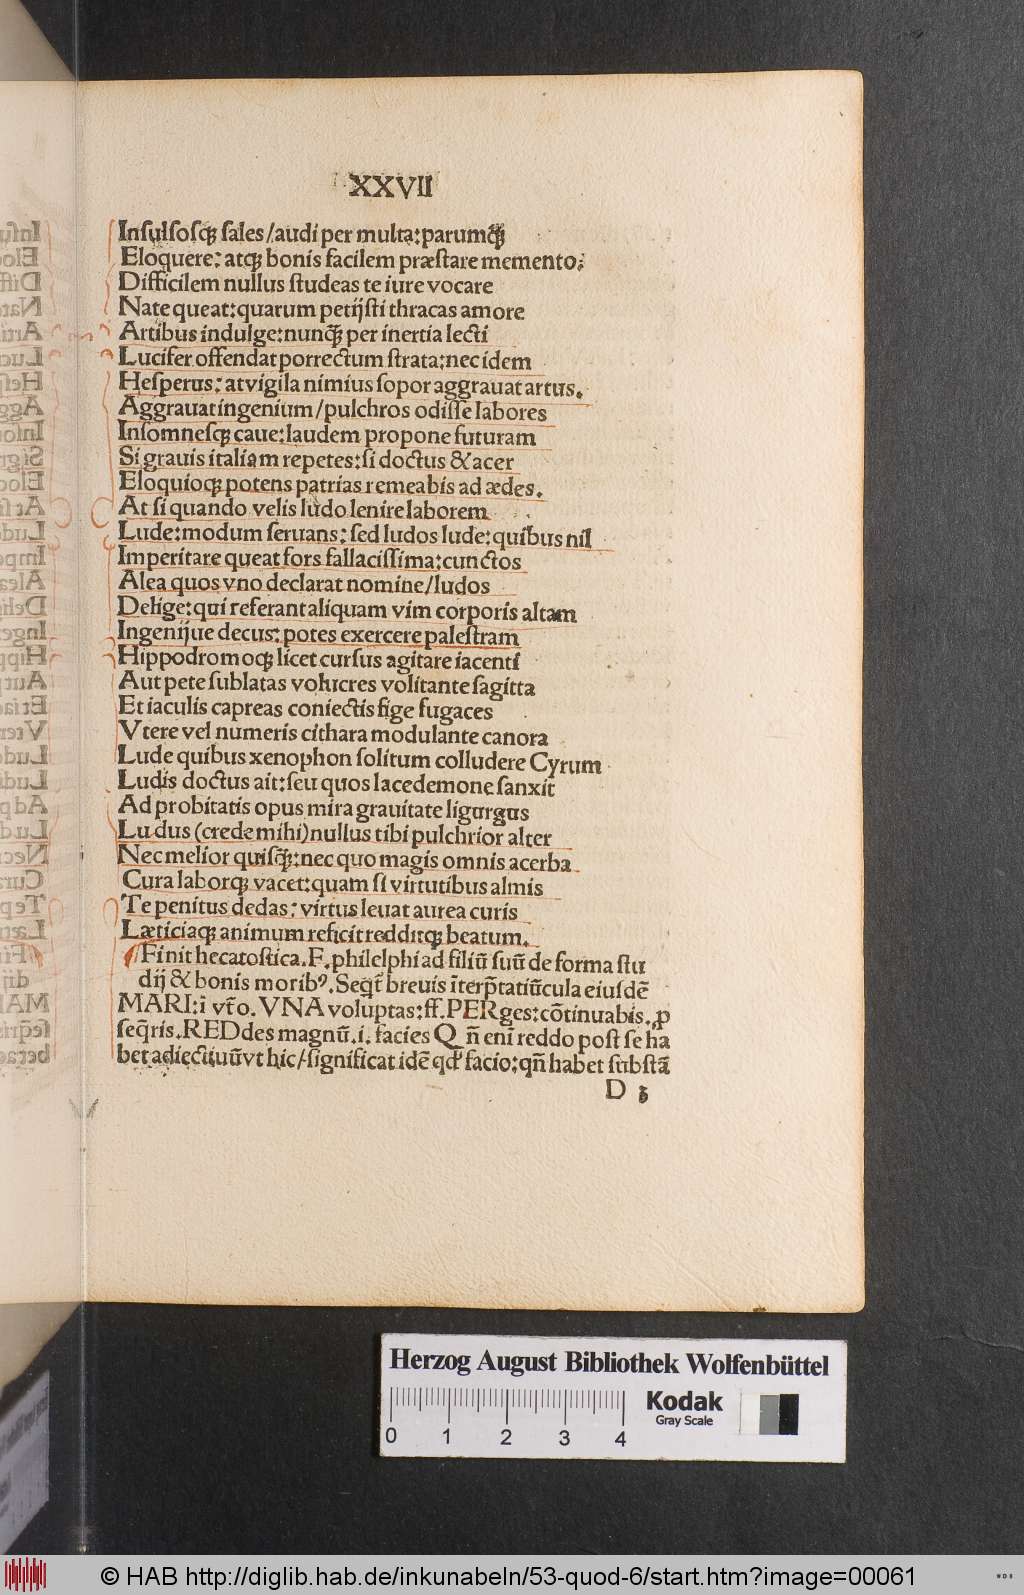 XXVII
Inſulſoſqꝫ ſales/audi per multa:parumqꝫ
Eloquere: atqꝫ bonis facilem præſtare memento:
Difficilem nullus ſtudeas te iure vocare
Nate queat:quarum petijſti thracas amore
Artibus indulge:nunqꝫ̃ per inertia lecti
Lucifer offendat porrectum ſtrata:nec idem
Heſperus: at vigila nimius ſopor aggrauat artus.
Aggrauat ingenium/pulchros odiſſe labores
Inſomneſqꝫ caue:laudem propone futuram
Si grauis italiam repetes:ſi doctus & acer
Eloquioqꝫ potens patrias remeabis ad ædes.
At ſi quando velis ludo lenire laborem
Lude:modum ſeruans: ſed ludos lude:quibus nil
Imperitare queat fors fallaciſſima:cunctos
Alea quos vno declarat nomine/ludos
Delige:qui referant aliquam vim corporis altam
Ingenijue decus: potes exercere paleſtram
Hippodromoqꝫ licet curſus agitare iacenti
Aut pete ſublatas volucres volitante ſagitta
Et iaculis capreas coniectis fige fugaces
Vtere vel numeris cithara modulante canora
Lude quibus xenophon ſolitum colludere Cyrum
Ludis doctus ait:ſeu quos lacedemone ſanxit
Ad probitatis opus mira grauitate ligurgus
Ludus (crede mihi)nullus tibi pulchrior alter
Nec melior quiſqꝫ̃:nec quo magis omnis acerba
Cura laborqꝫ vacet:quam ſi virtutibus almis
Te penitus dedas: virtus leuat aurea curis
Læticiaqꝫ animum reficit redditqꝫ beatum.
Finit hecatoſtica.F.philelphi ad filiū ſuū de forma ſtu
dij & bonis moribꝰ. Seqt̃ breuis īterp̃tatiūcula eiuſdē
MARI:ī vt̃o.VNA voluptas:ff.PERges:cõtinuabis.ꝑ
ſeq̃ris.REDdes magnū.i.facies Q ñ eni reddo poſt ſe ha
bet adiectiuūvt hic/ſignificat idē qd̓ facio:qñ habet ſubſtā
D 3
Herzog August Bibliothek Wolfenbüttel
Kodak
Gray Scale
0 1 2 3 4
© HAB http://diglib.hab.de/inkunabeln/53-quod-6/start.htm?image=00061